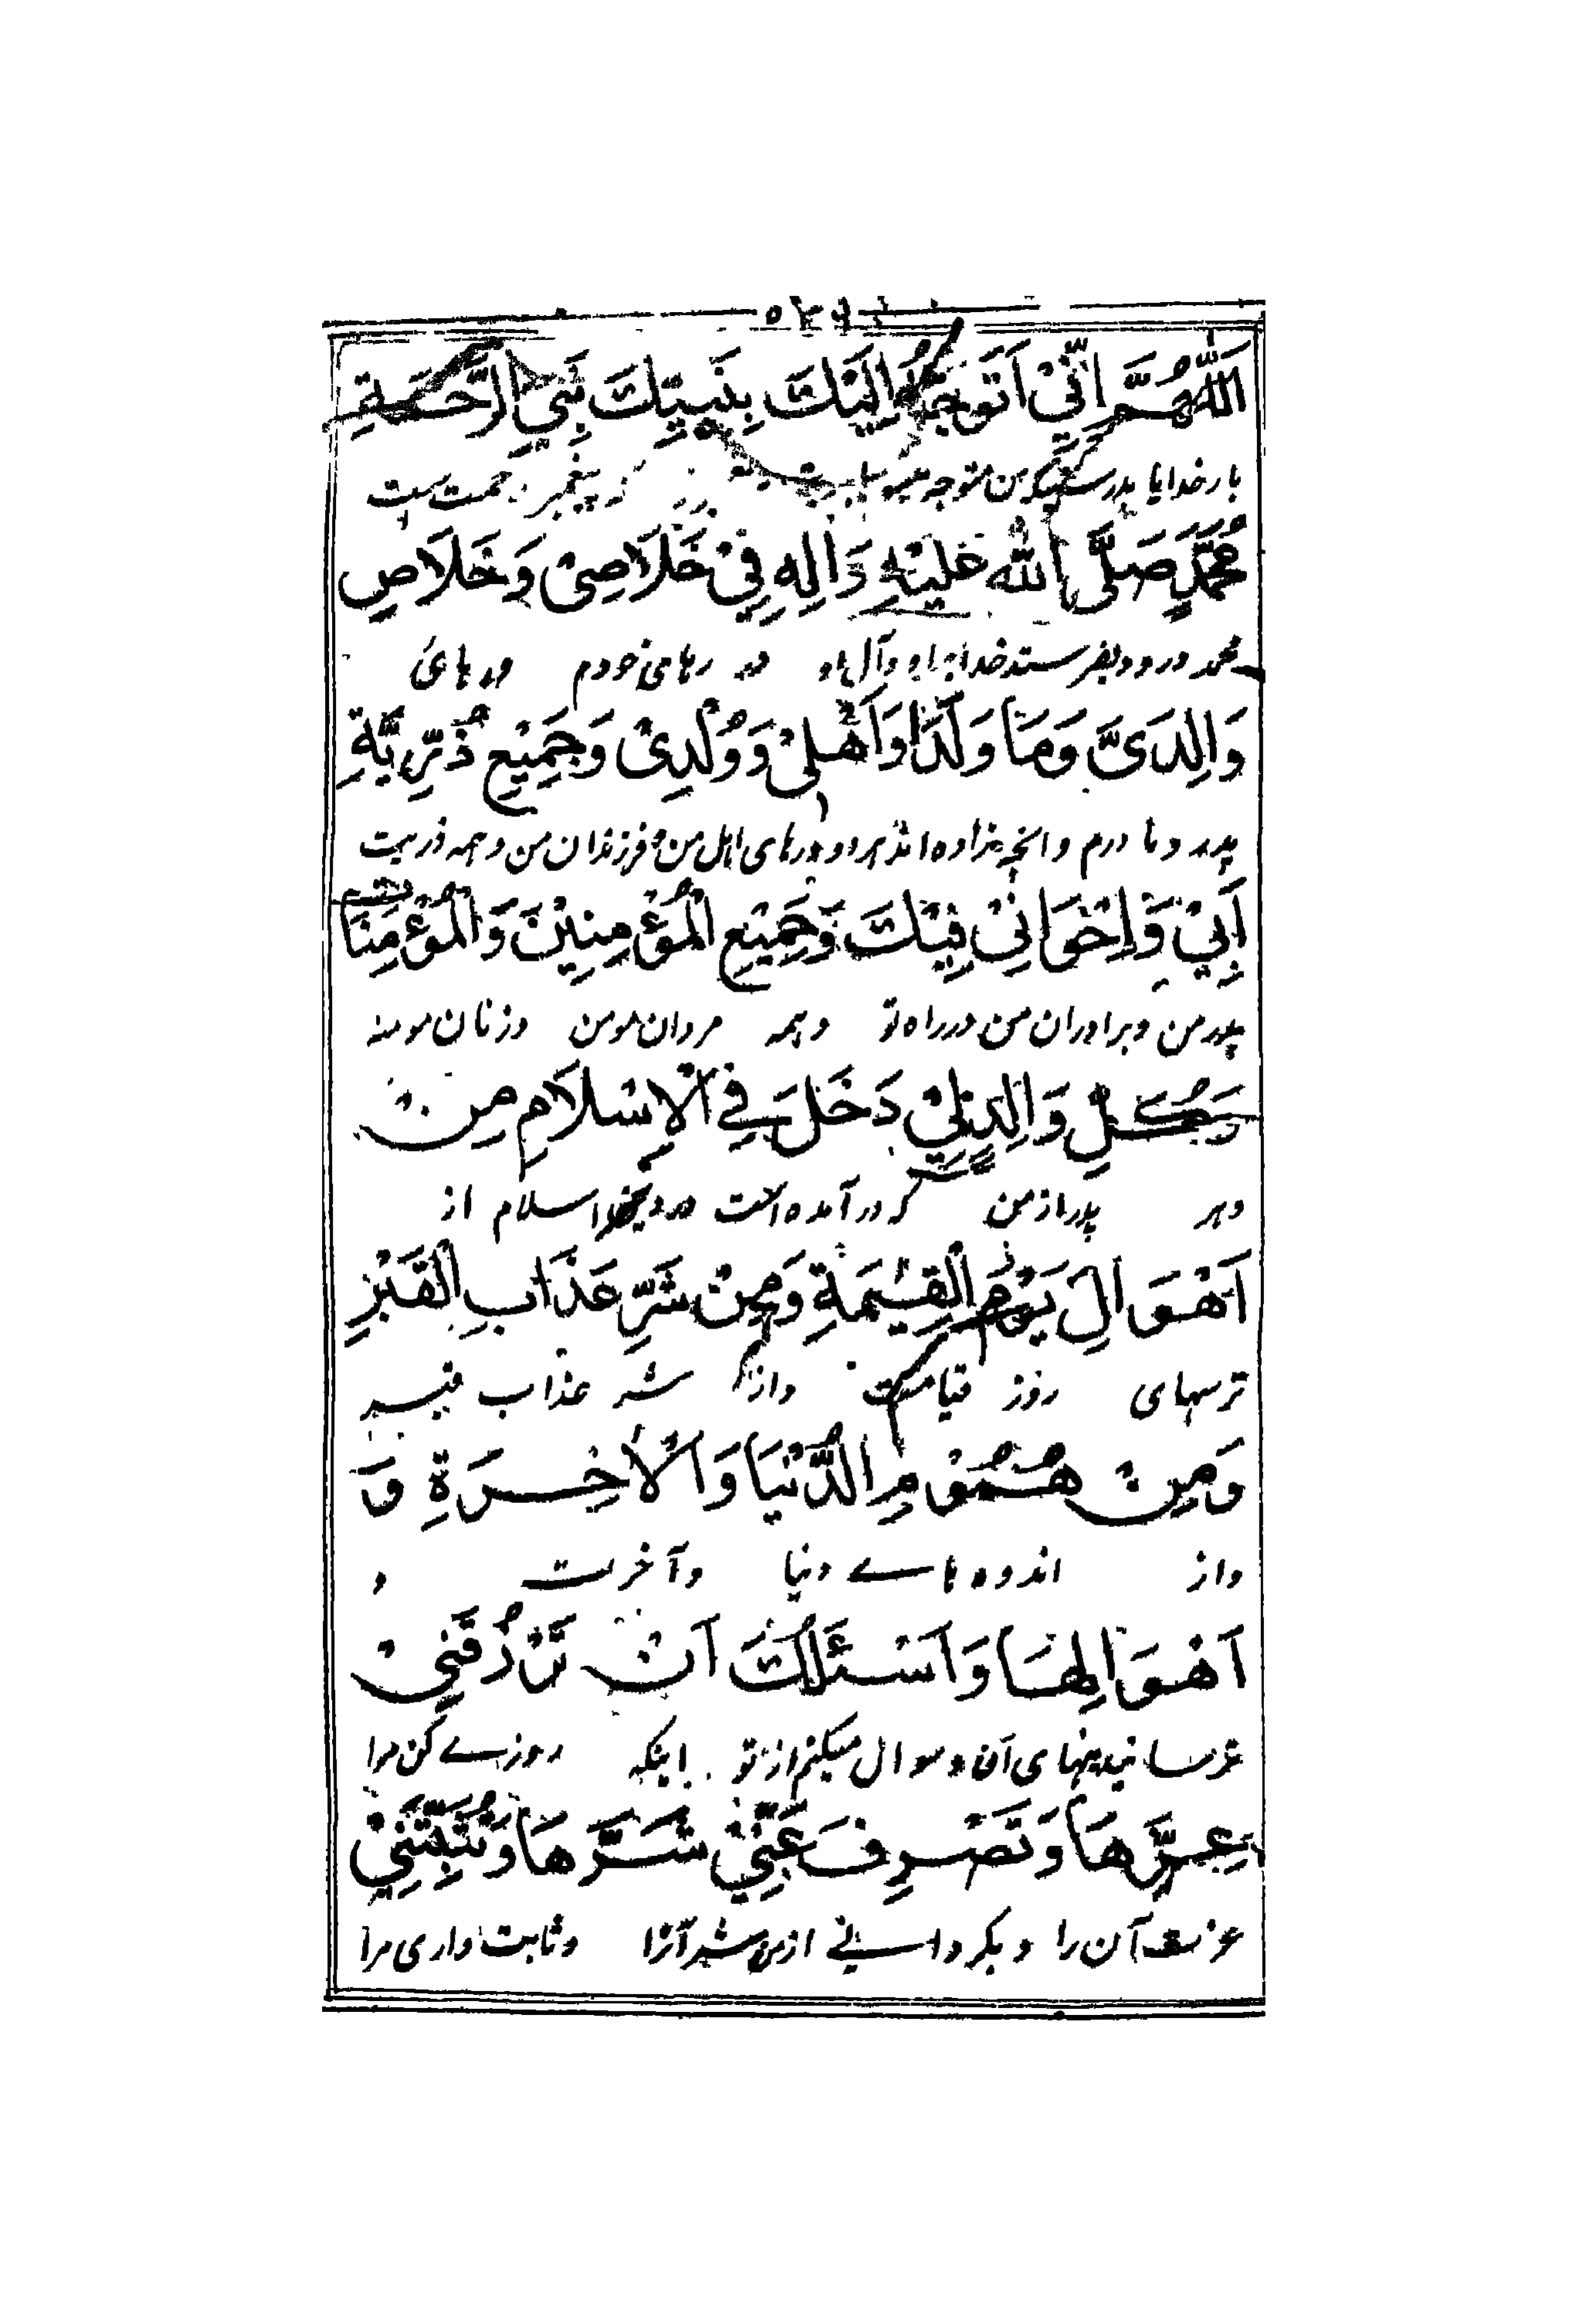 اَللّٰهُمَّ اِنِّیْ اَتَوَجَّهُ اِلَیْكَ بِنَبِیِّكَ نَبِیِّ الرَّحْمَةِ
بار خدایا بدرستیکه من متوجه میشوم که پیغمبر رحمت ست
مُحَمَّدٍ صَلَّی اللّٰهُ عَلَیْهِ وَاٰلِهِ فِیْ خَلَاصِیْ وَخَلَاصِ
محمد درود بفرستد خدا بر او وآل او در رهای خودم ورهائ
وَالِدَیَّ وَمَا وَلَدَا وَاَهْلِیْ وَوُلْدِیْ وَجَمِیْعِ ذُرِّیَّةِ
پدر و مادرم و آنچه زاده اند هر دو ورهای اهل من وفرزندان من وهمه ذریت
اَبِیْ وَاِخْوَانِیْ فِیْكَ وَجَمِیْعِ الْمُؤْمِنِیْنَ وَالْمُؤْمِنَاتِ
پدر من وبرادران من درراه تو وهمه مردان مومن وزنان مومنه
وَكُلِّ وَالِدٍ لِیْ دَخَلَ فِی الْاِسْلَامِ مِنْ
وهر پدر از من که در آمده است در اسلام از
اَهْوَالِ یَوْمِ الْقِیٰمَةِ وَمِنْ شَرِّ عَذَابِ الْقَبْرِ
ترسهای روز قیامت واز شر عذاب قبر
وَمِنْ هُمُوْمِ الدُّنْیَا وَالْاٰخِرَةِ وَ
واز اندوه هاے دنیا وآخرت و
اَهْوَالِهَا وَاَسْئَلُكَ اَنْ تَرْزُقَنِیْ
ترسانیدنهای آن وسوال میکنم از تو اینکه روزے کن مرا
عِزَّهَا وَتَصْرِفَ عَنِّیْ شَرَّهَا وَتُثَبِّتَنِیْ
عزت آن را وبگردانے از من شر آنرا وثابت داری مرا